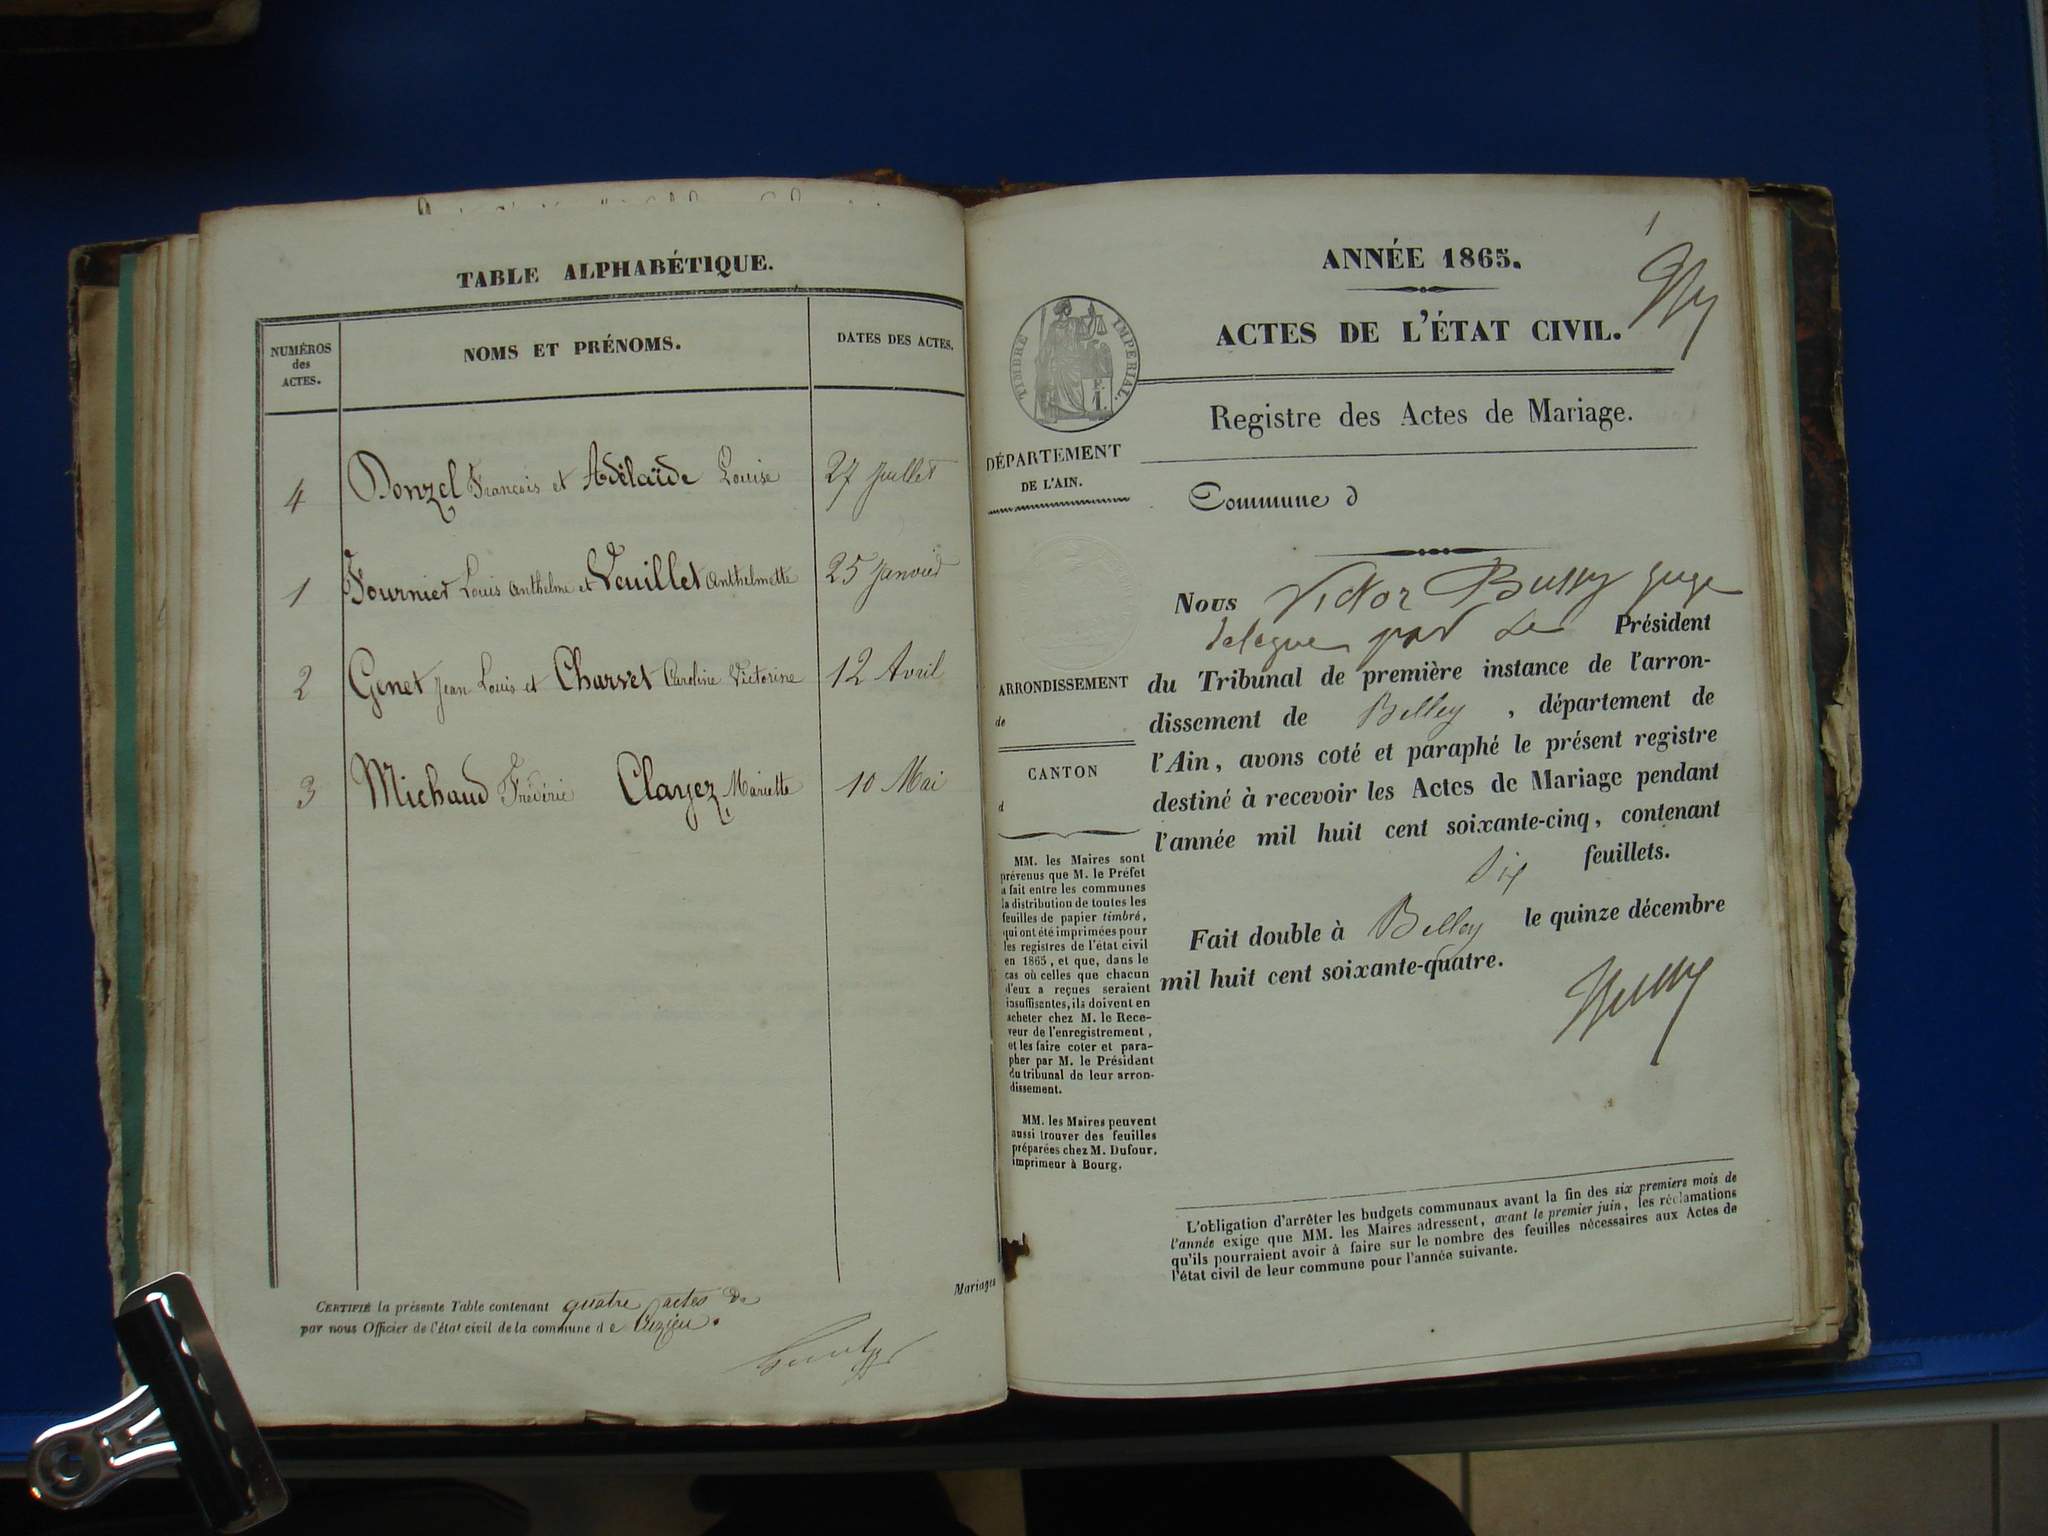 TABLE ALPHABÉTIQUE.
NUMÉROS
des
ACTES.
NOMS ET PRÉNOMS.
DATES DES ACTES.
4 Donzel François et Adélaïde Louise 27 Juillet
1 Fournier Louis Anthelme et Veuillet Anthelmette 25 Janvier
2 Genet Jean Louis et Charvet Caroline Victorine 12 Avril
3 Michaud Frédéric Clayez Mariette 10 Mai
Mariages
CERTIFIÉ la présente Table contenant quatre actes de
par nous Officier de l'état civil de la commune de Cuzieu.
1
ANNÉE 1865.
ACTES DE L'ÉTAT CIVIL.
TIMBRE IMPÉRIAL.
Registre des Actes de Mariage.
DÉPARTEMENT
DE L'AIN.
Commune d
ARRONDISSEMENT
de
CANTON
d
MM. les Maires sont
prévenus que M. le Préfet
a fait entre les communes
la distribution de toutes les
feuilles de papier timbré,
qui ont été imprimées pour
les registres de l'état civil
en 1865, et que, dans le
cas où celles que chacun
d'eux a reçues seraient
insuffisantes, ils doivent en
acheter chez M. le Rece-
veur de l'enregistrement,
et les faire coter et para-
pher par M. le Président
du tribunal de leur arron-
dissement.
MM. les Maires peuvent
aussi trouver des feuilles
préparées chez M. Dufour,
imprimeur à Bourg.
Nous Victor Bussy Juge
délégué par Le Président
du Tribunal de première instance de l'arron-
dissement de Belley, département de
l'Ain, avons coté et paraphé le présent registre
destiné à recevoir les Actes de Mariage pendant
l'année mil huit cent soixante-cinq, contenant
Six feuillets.
Fait double à Belley le quinze décembre
mil huit cent soixante-quatre.
Bussy
L'obligation d'arrêter les budgets communaux avant la fin des six premiers mois de
l'année exige que MM. les Maires adressent, avant le premier juin, les réclamations
qu'ils pourraient avoir à faire sur le nombre des feuilles nécessaires aux Actes de
l'état civil de leur commune pour l'année suivante.